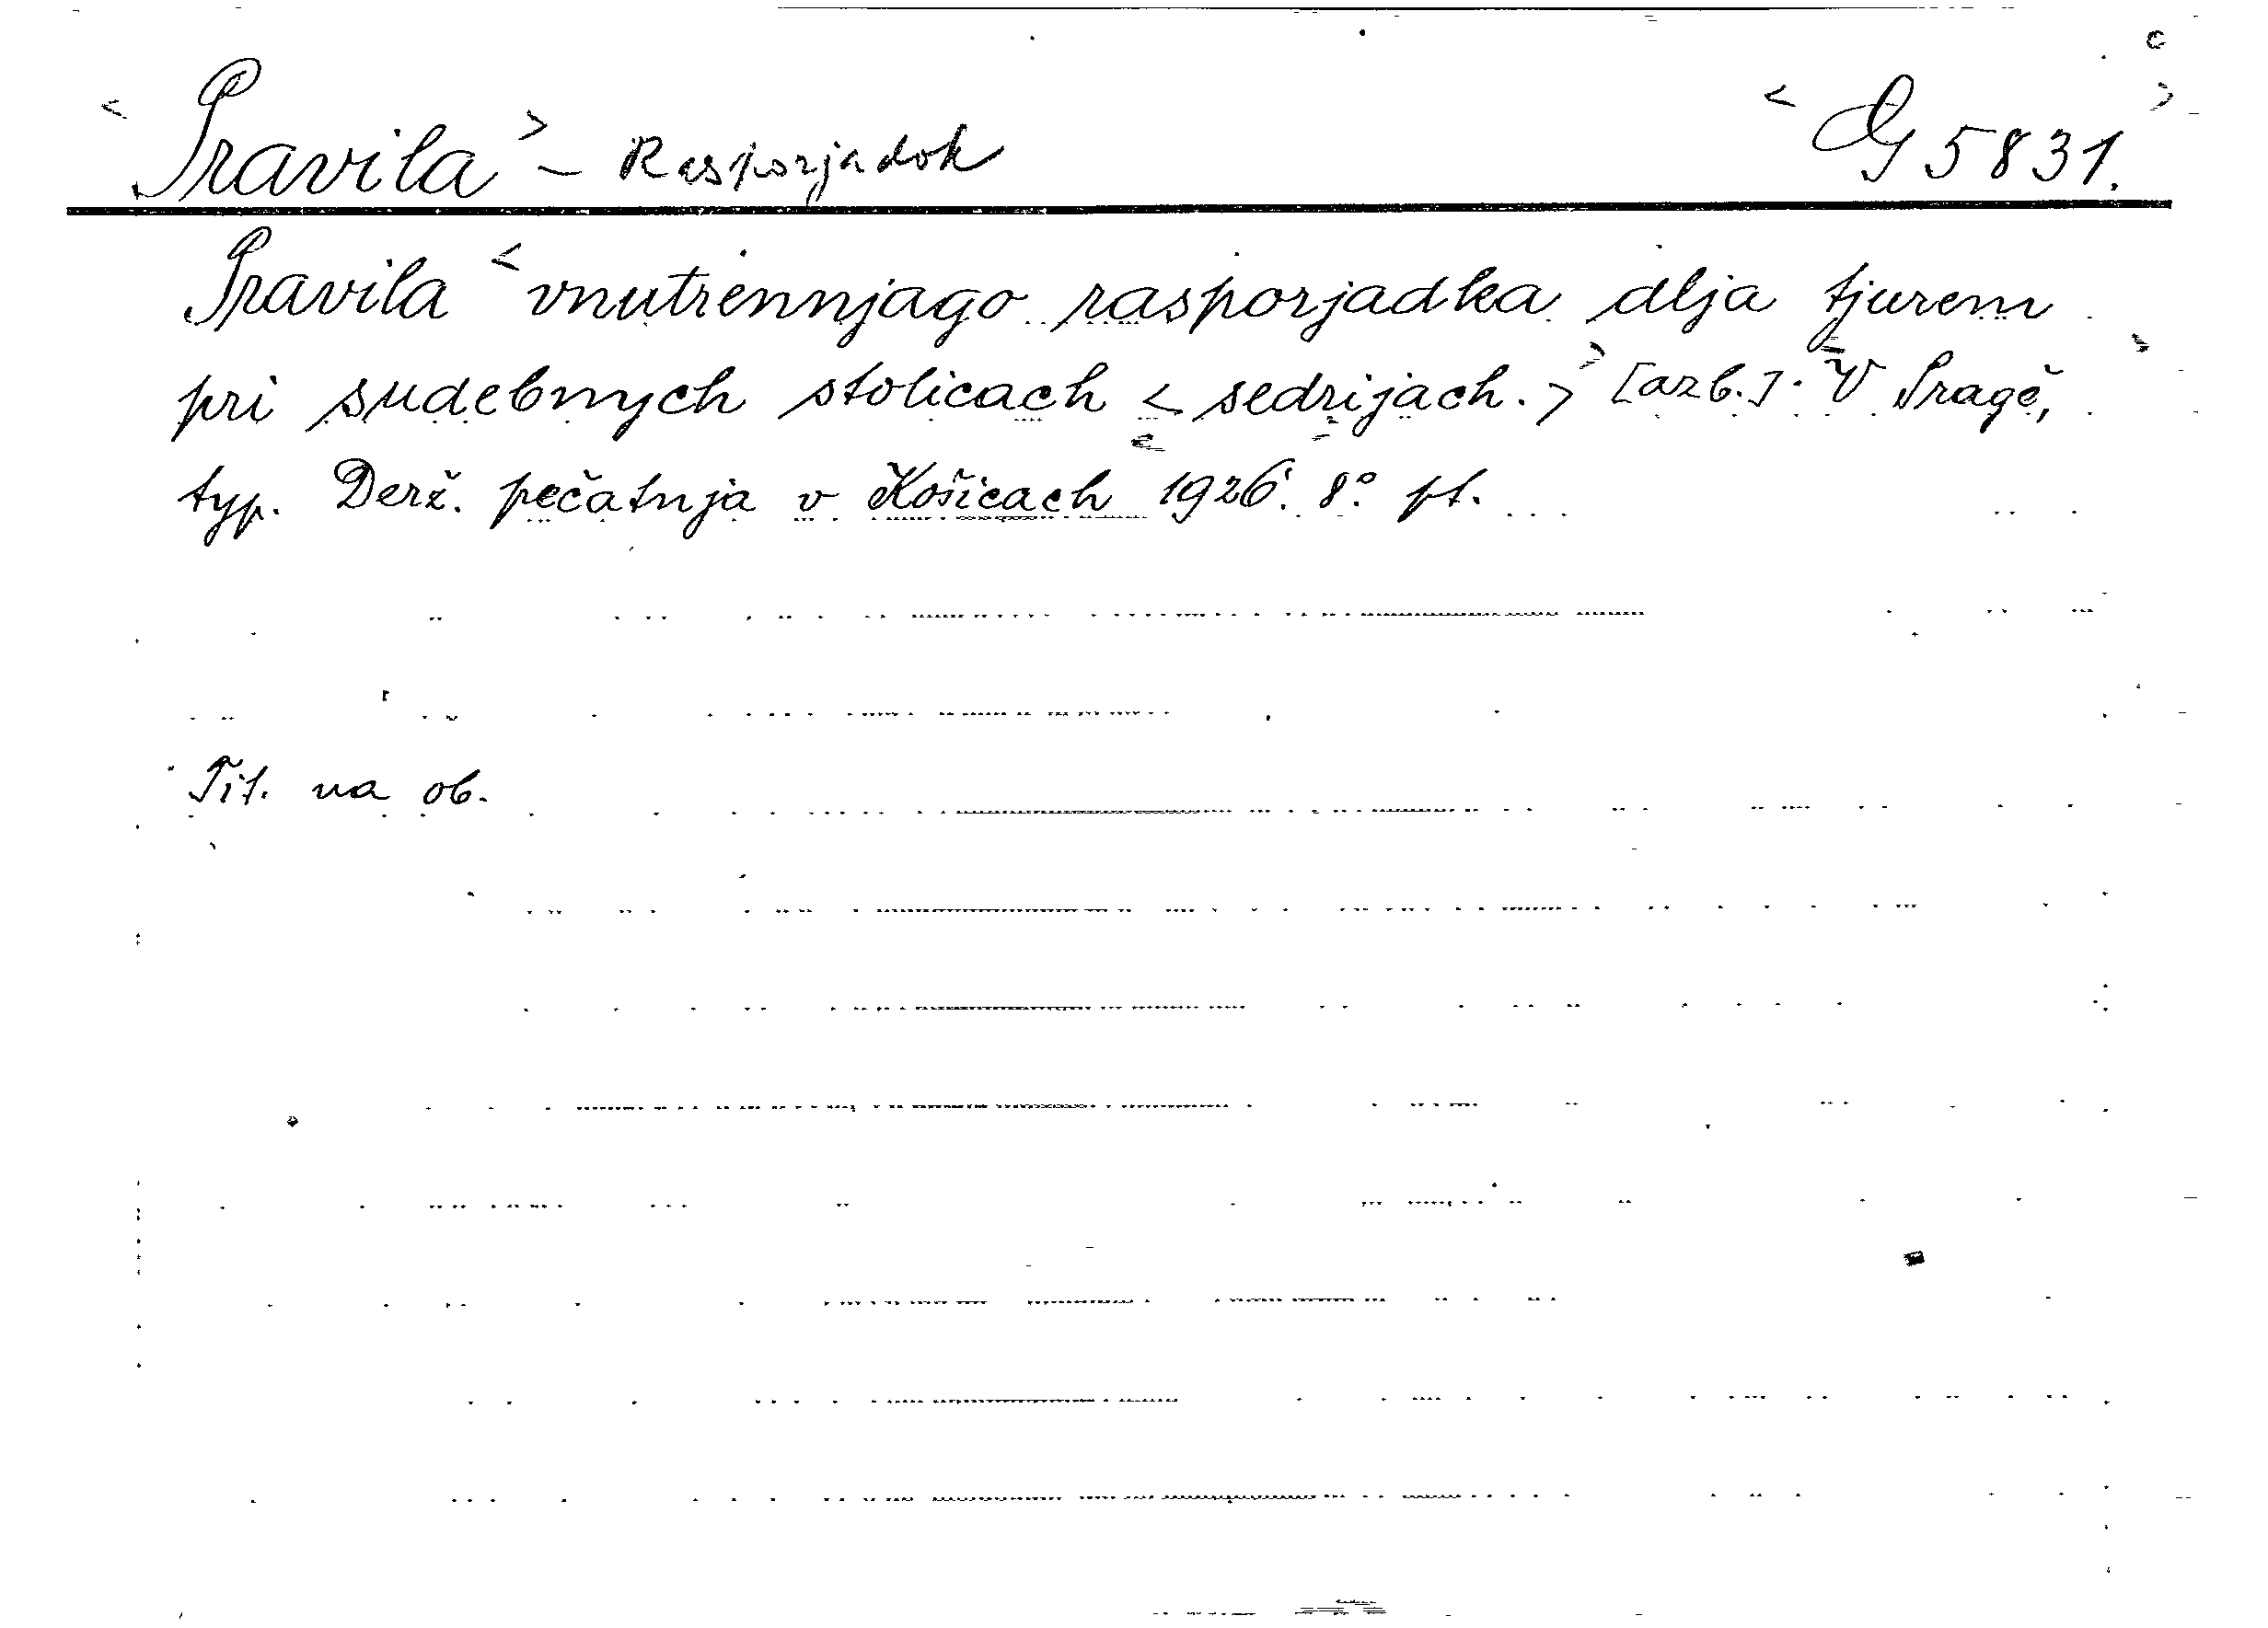 <Pravila> - Rasporjadok <G 5831.>
Pravila <vnutrennjago rasporjadka dlja tjurem
pri sudebnych stolicach <sedrijach.>> [azb.]. V Pragě,
typ. Derž. pečatnja v Košicach 1926. 8° pt.
Tit. na ob.